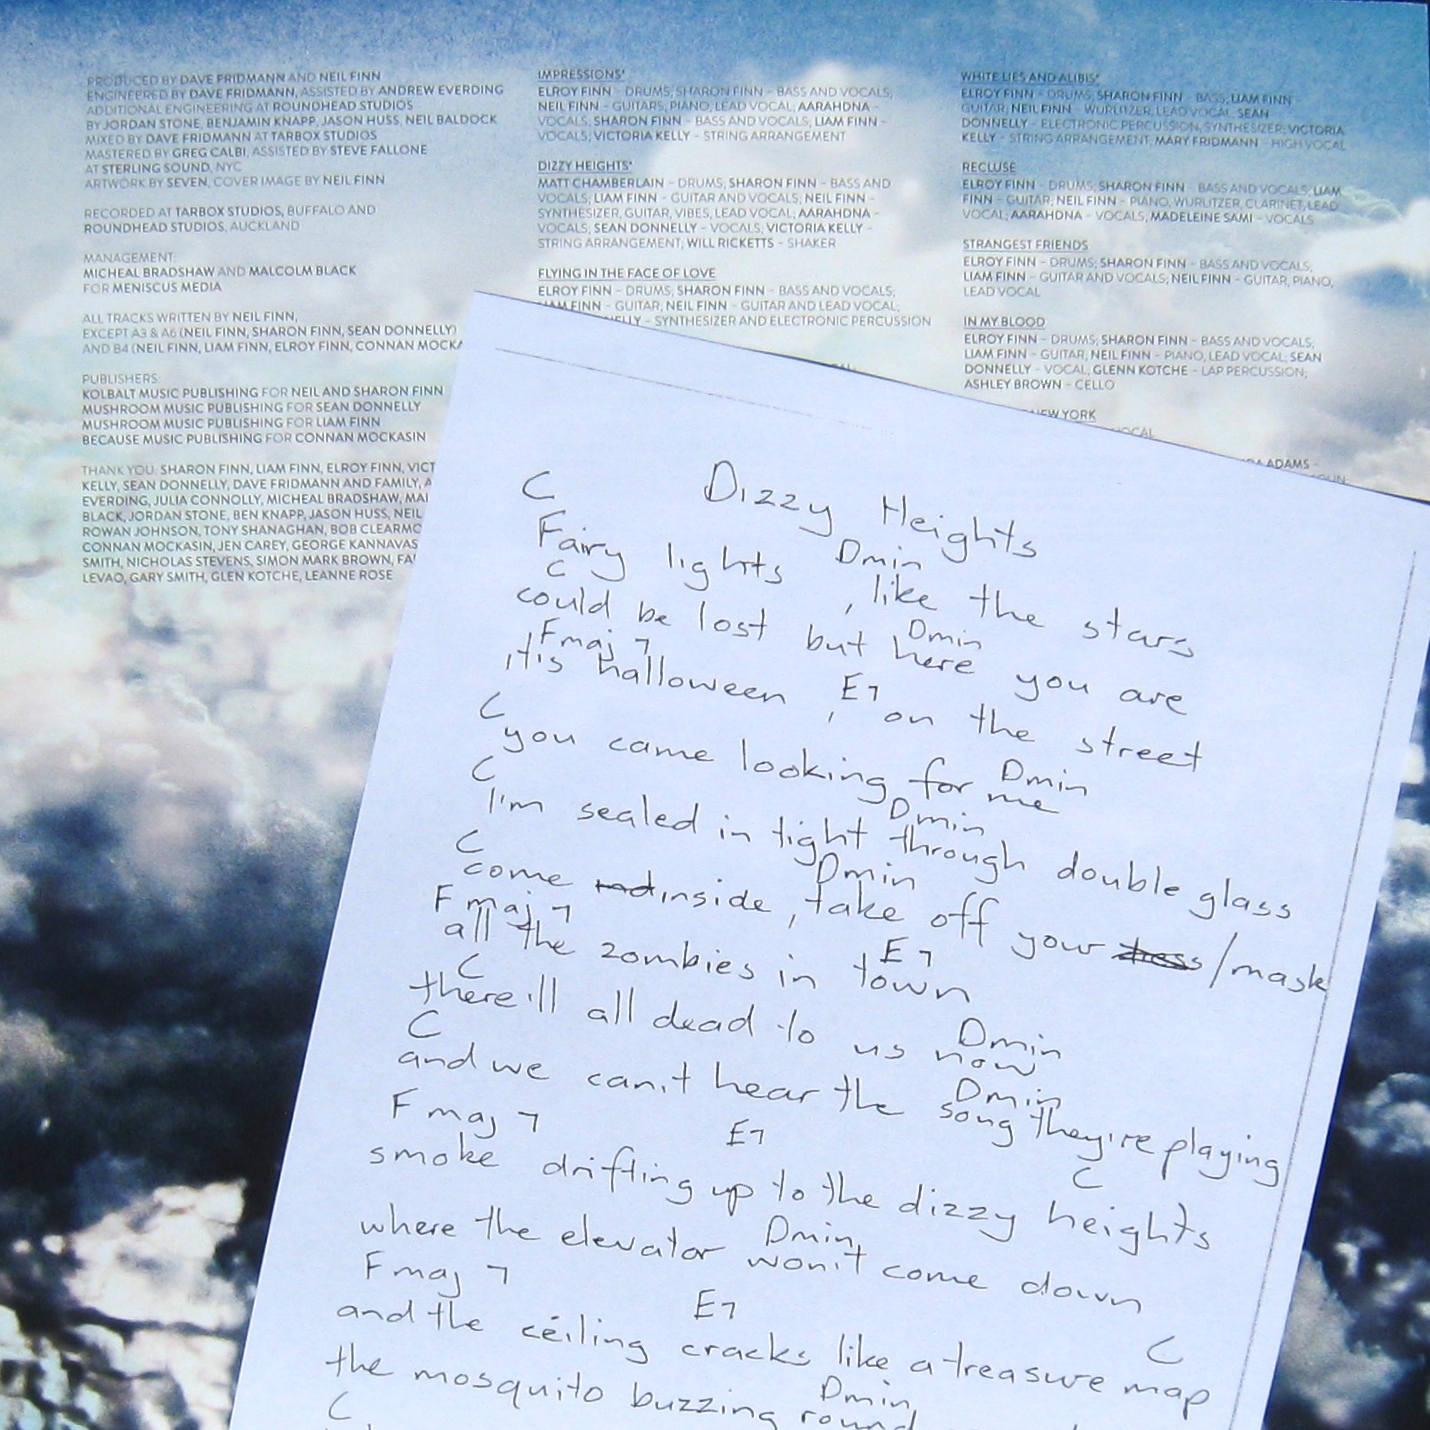 PRODUCED BY DAVE FRIDMANN AND NEIL FINN
ENGINEERED BY DAVE FRIDMANN, ASSISTED BY ANDREW EVERDING
ADDITIONAL ENGINEERING AT ROUNDHEAD STUDIOS
BY JORDAN STONE, BENJAMIN KNAPP, JASON HUSS, NEIL BALDOCK
MIXED BY DAVE FRIDMANN AT TARBOX STUDIOS
MASTERED BY GREG CALBI, ASSISTED BY STEVE FALLONE
AT STERLING SOUND, NYC
ARTWORK BY SEVEN, COVER IMAGE BY NEIL FINN
RECORDED AT TARBOX STUDIOS, BUFFALO AND
ROUNDHEAD STUDIOS, AUCKLAND
MANAGEMENT:
MICHEAL BRADSHAW AND MALCOLM BLACK
FOR MENISCUS MEDIA
ALL TRACKS WRITTEN BY NEIL FINN,
EXCEPT A3 & A6 (NEIL FINN, SHARON FINN, SEAN DONNELLY)
AND B4 (NEIL FINN, LIAM FINN, ELROY FINN, CONNAN MOCKA
PUBLISHERS:
KOLBALT MUSIC PUBLISHING FOR NEIL AND SHARON FINN
MUSHROOM MUSIC PUBLISHING FOR SEAN DONNELLY
MUSHROOM MUSIC PUBLISHING FOR LIAM FINN
BECAUSE MUSIC PUBLISHING FOR CONNAN MOCKASIN
THANK YOU: SHARON FINN, LIAM FINN, ELROY FINN, VICT
KELLY, SEAN DONNELLY, DAVE FRIDMANN AND FAMILY, A
EVERDING, JULIA CONNOLLY, MICHEAL BRADSHAW, MAL
BLACK, JORDAN STONE, BEN KNAPP, JASON HUSS, NEIL
ROWAN JOHNSON, TONY SHANAGHAN, BOB CLEARMO
CONNAN MOCKASIN, JEN CAREY, GEORGE KANNAVAS
SMITH, NICHOLAS STEVENS, SIMON MARK BROWN,
LEVAO, GARY SMITH, GLEN KOTCHE, LEANNE ROSE
IMPRESSIONS*
ELROY FINN - DRUMS; SHARON FINN - BASS AND VOCALS;
NEIL FINN - GUITARS, PIANO, LEAD VOCAL; AARAHDNA -
VOCALS; SHARON FINN - BASS AND VOCALS; LIAM FINN -
VOCALS; VICTORIA KELLY - STRING ARRANGEMENT
DIZZY HEIGHTS*
MATT CHAMBERLAIN - DRUMS; SHARON FINN - BASS AND
VOCALS; LIAM FINN - GUITAR AND VOCALS; NEIL FINN -
SYNTHESIZER, GUITAR, VIBES, LEAD VOCAL; AARAHDNA -
VOCALS; SEAN DONNELLY - VOCALS; VICTORIA KELLY -
STRING ARRANGEMENT; WILL RICKETTS - SHAKER
FLYING IN THE FACE OF LOVE
ELROY FINN - DRUMS; SHARON FINN - BASS AND VOCALS;
LIAM FINN - GUITAR; NEIL FINN - GUITAR AND LEAD VOCAL;
NELLY - SYNTHESIZER AND ELECTRONIC PERCUSSION
WHITE LIES AND ALIBIS*
ELROY FINN - DRUMS; SHARON FINN - BASS; LIAM FINN -
GUITAR; NEIL FINN - WURLITZER, LEAD VOCAL; SEAN
DONNELLY - ELECTRONIC PERCUSSION, SYNTHESIZER; VICTORIA
KELLY - STRING ARRANGEMENT; MARY FRIDMANN - HIGH VOCAL
RECLUSE
ELROY FINN - DRUMS; SHARON FINN - BASS AND VOCALS; LIAM
FINN - GUITAR; NEIL FINN - PIANO, WURLITZER, CLARINET, LEAD
VOCAL; AARAHDNA - VOCALS; MADELEINE SAMI - VOCALS
STRANGEST FRIENDS
ELROY FINN - DRUMS; SHARON FINN - BASS AND VOCALS;
LIAM FINN - GUITAR AND VOCALS; NEIL FINN - GUITAR, PIANO,
LEAD VOCAL
IN MY BLOOD
ELROY FINN - DRUMS; SHARON FINN - BASS AND VOCALS;
LIAM FINN - GUITAR; NEIL FINN - PIANO, LEAD VOCAL; SEAN
DONNELLY - VOCAL; GLENN KOTCHE - LAP PERCUSSION;
ASHLEY BROWN - CELLO
NEW YORK
VOCAL
ADAMS -
Dizzy Heights
C Dmin
Fairy lights, like the stars
C Dmin
could be lost but here you are
Fmaj 7 E7
it's halloween, on the street
C Dmin
you came looking for me
C Dmin
I'm sealed in tight through double glass
C Dmin
come inside, take off your / mask
F maj 7 E7
all the zombies in town
C Dmin
there'll all dead to us now
C Dmin
and we can't hear the song they're playing
F maj 7 E7 C
smoke drifting up to the dizzy heights
Dmin
where the elevator won't come down
F maj 7 E7 C
and the ceiling cracks like a treasure map
Dmin
the mosquito buzzing round
C